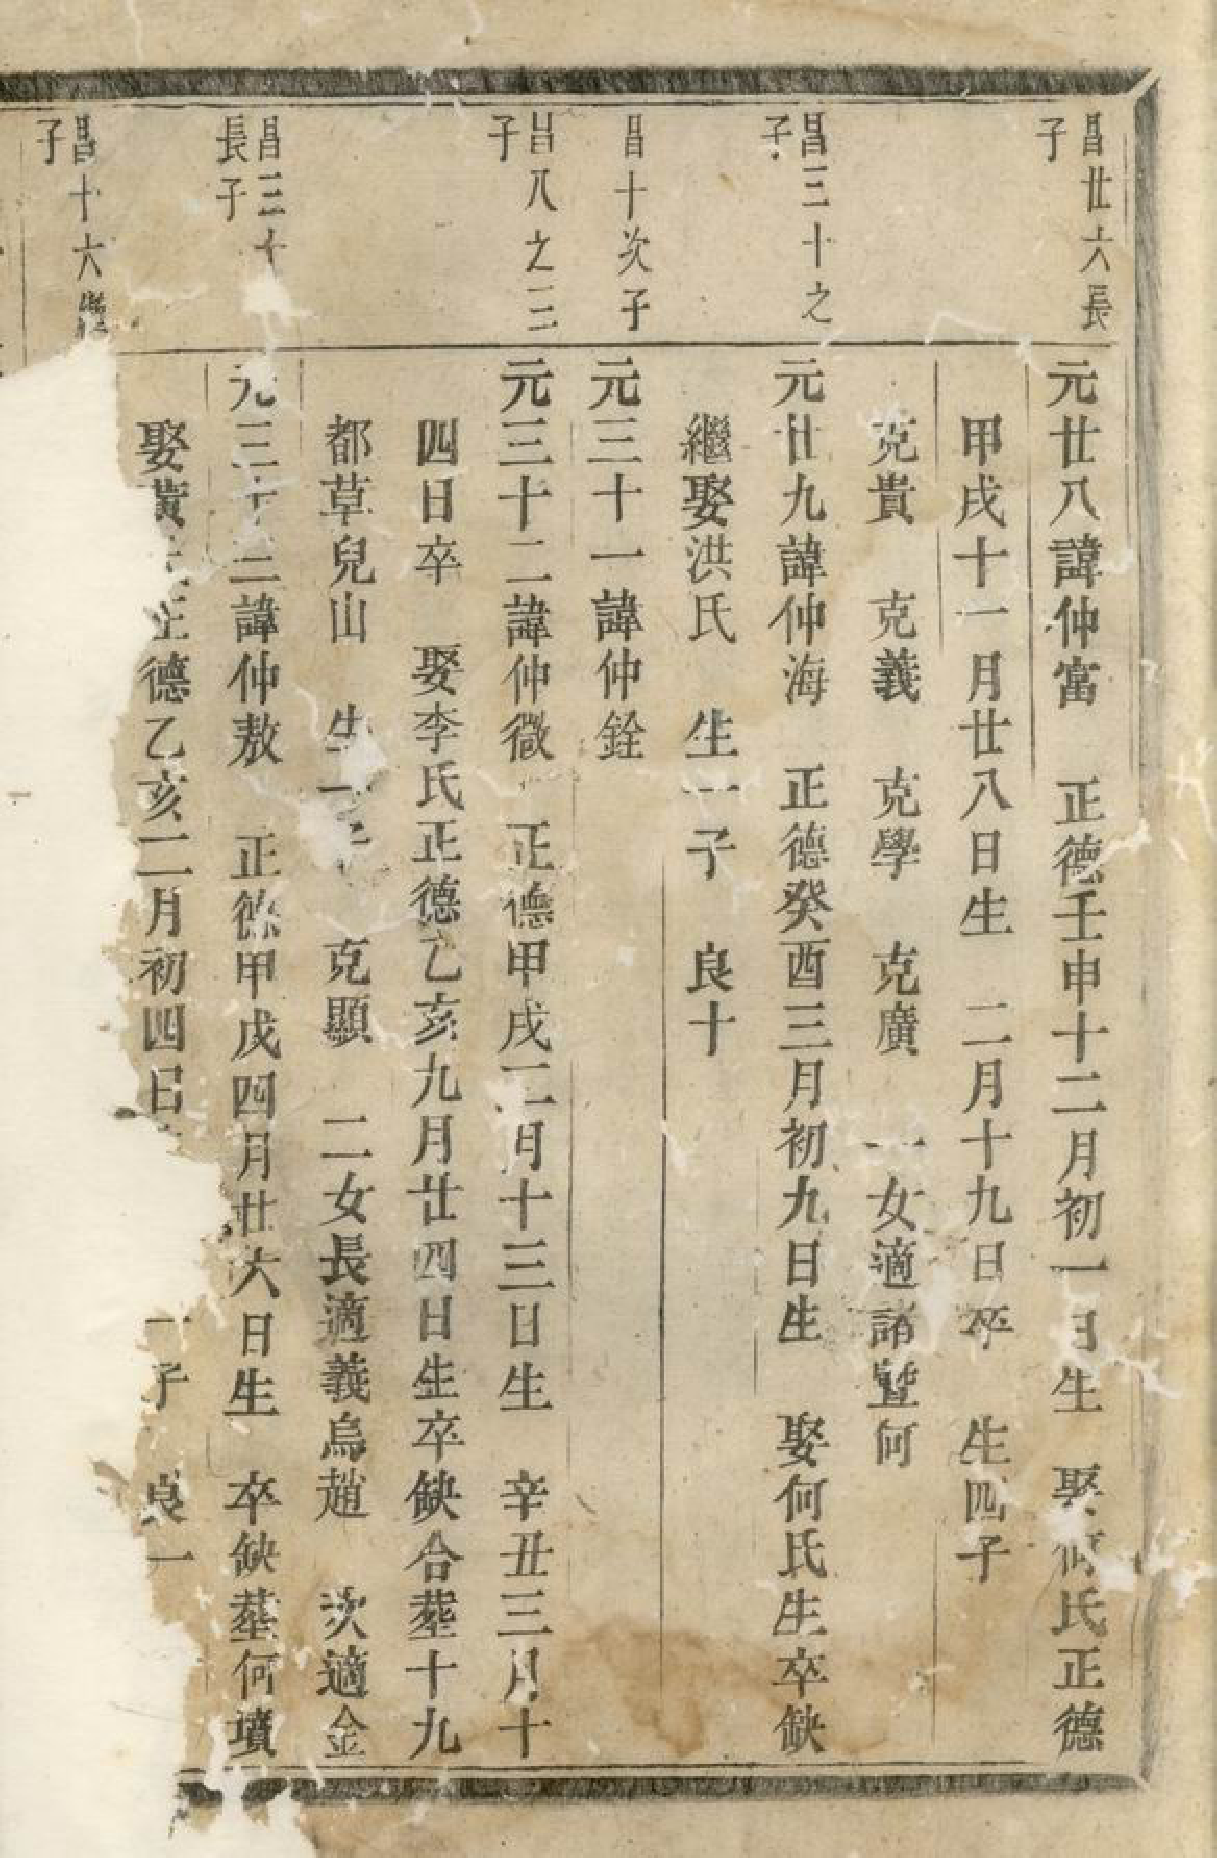 昌廿六長
子
元廿八諱仲富 正德壬申十二月初一日生 娶何氏正德
甲戌十一月廿八日生 二月十九日卒 生四子
克貴 克義 克學 克廣 一女適諸暨何
昌三十之
子
元廿九諱仲海 正德癸酉三月初九日生 娶何氏生卒缺
繼娶洪氏 生一子 良十
昌十次子
元三十一諱仲銓
昌八之三
子
元三十二諱仲徵 正德甲戌二月十三日生 辛丑三月十
四日卒 娶李氏正德乙亥九月廿四日生卒缺合塟十九
都草兒山 生一子 克顯 二女長適義烏趙 次適金
昌三十
長子
元三十三諱仲敖 正德甲戌四月廿六日生 卒缺塟何墳
娶黃 正德乙亥二月初四日 一子 良一
昌十六繼
子